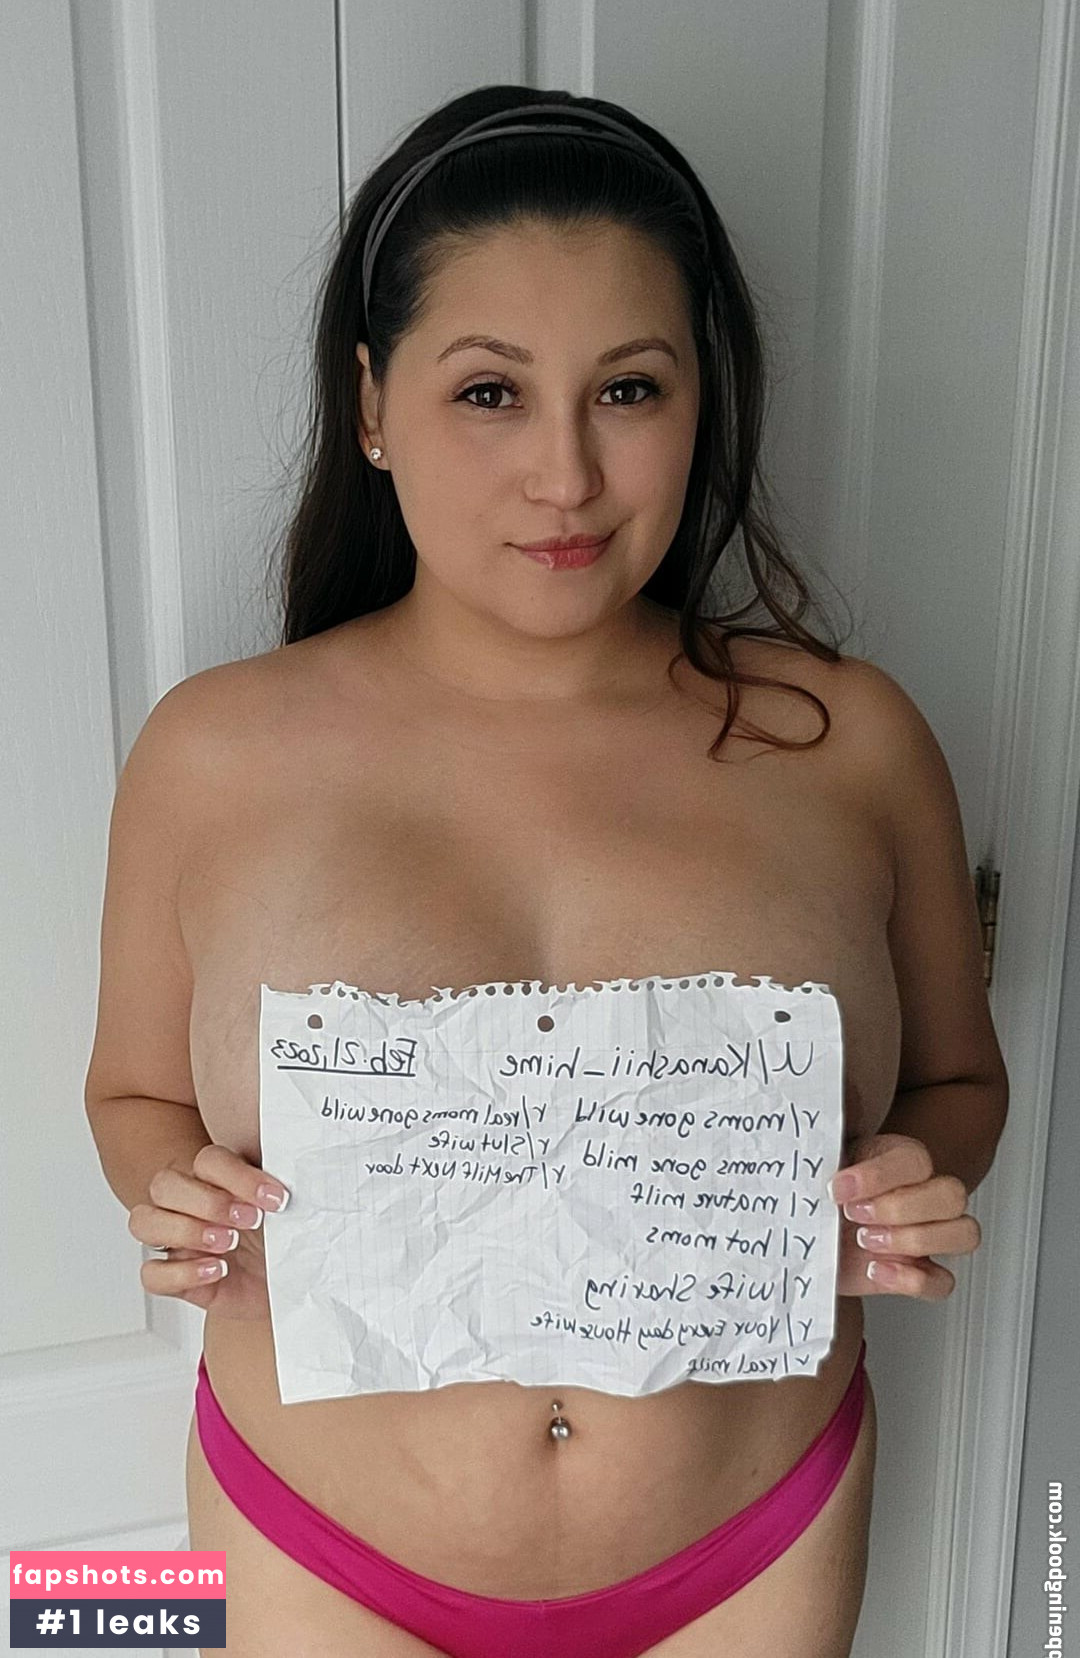 u/Kanashii_hime
Feb. 21, 2023
r/momsgonewild
r/moms gone mild
r/mature milf
r/hot moms
r/wife Sharing
r/Your Everyday Housewife
r/real milf
r/real momsgonewild
r/Slutwife
r/TheMilfNextdoor
fapshots.com
#1 leaks
ppeningbook.com